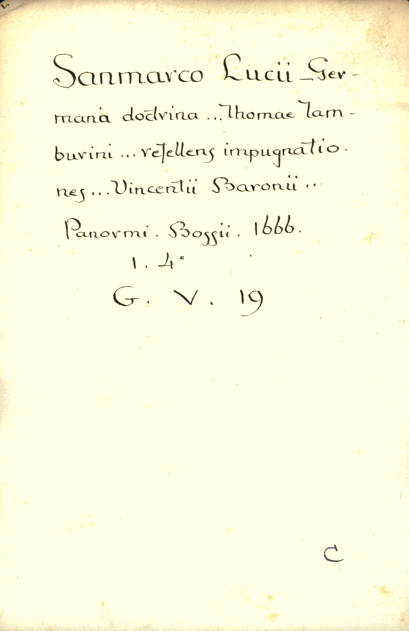 Sanmarco Lucii _Ger-
mana doctrina ... Thomae Tam-
burini ... refellens impugnatio.
nes ... Vincentii Baronii ..
Panormi. Bossii. 1666.
1. 4°
G. V. 19
C